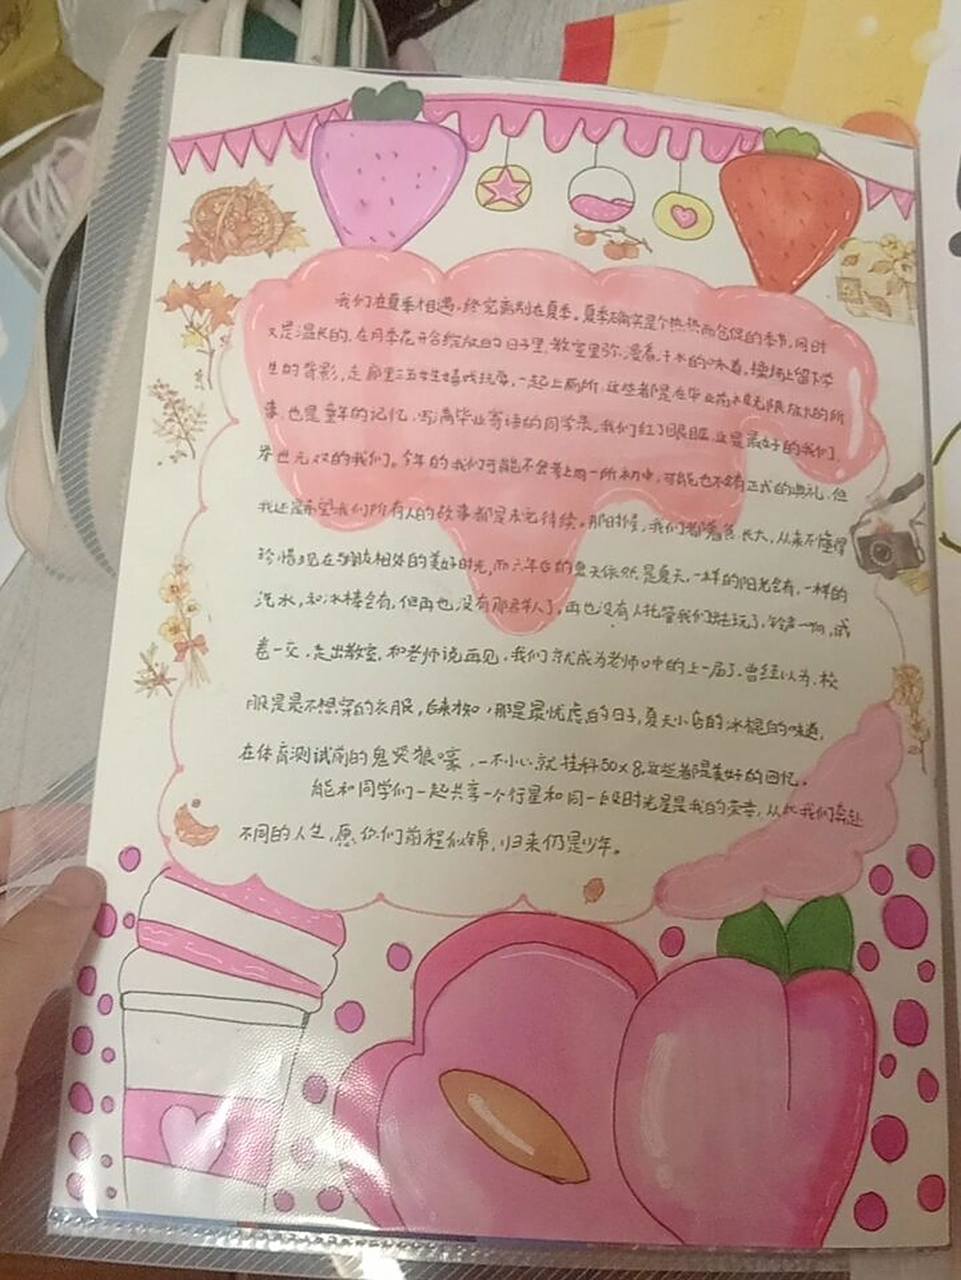 我们在夏季相遇,终究离别在夏季。夏季确实是个热热而仓促的季节,同时
又是温长的,在月季花开合绽放的日子里,教室里弥漫着汗水的味着,操场上留下学
生的背影,走廊里三五女生嬉戏玩耍,一起上厕所,这些都是在毕业前被无限放大的所
事,也是童年的记忆,写满毕业寄语的同学录,我们红了眼眶,这是最好的我们,
举世无双的我们。今年的我们可能不会考上同一所初中,可能也不会有正式的典礼,但
我还是希望我们所有人的故事都是未完待续。那时候,我们都着急长大,从来不懂得
珍惜现在与朋友相处的美好时光,而六年后的夏天依然是夏天,一样的阳光会有,一样的
汽水,和冰棒会有,但再也没有那群人了,再也没有人托管我们出去玩了,铃声一响,试
卷一交,走出教室,和老师说再见,我们就成为老师口中的上一届了,曾经以为,校
服是最不想穿的衣服,后来才知,那是最忧虑的日子,夏天小店的冰棍的味道,
在体育测试前的鬼哭狼嚎,一不小心就挂科50×8,这些都是美好的回忆。
能和同学们一起共享一个行星和同一段时光是我的荣幸,从此我们奔赴
不同的人生,愿你们前程似锦,归来仍是少年。